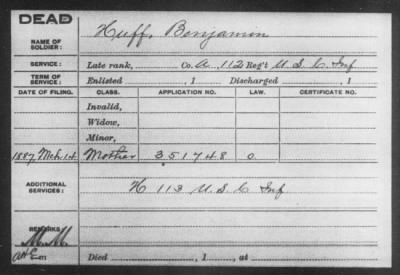 DEAD
NAME OF SOLDIER: Huff, Benjamin
SERVICE: Late rank, Co. A, 112 Reg't U. S. C. Inf
TERM OF SERVICE: Enlisted , 1 Discharged , 1
DATE OF FILING. CLASS. APPLICATION NO. LAW. CERTIFICATE NO.
Invalid,
Widow,
Minor,
1887 Mch 14 Mother 351748 0
ADDITIONAL SERVICES: H 113 U. S. C Inf
REMARKS:
Died , 1 , at